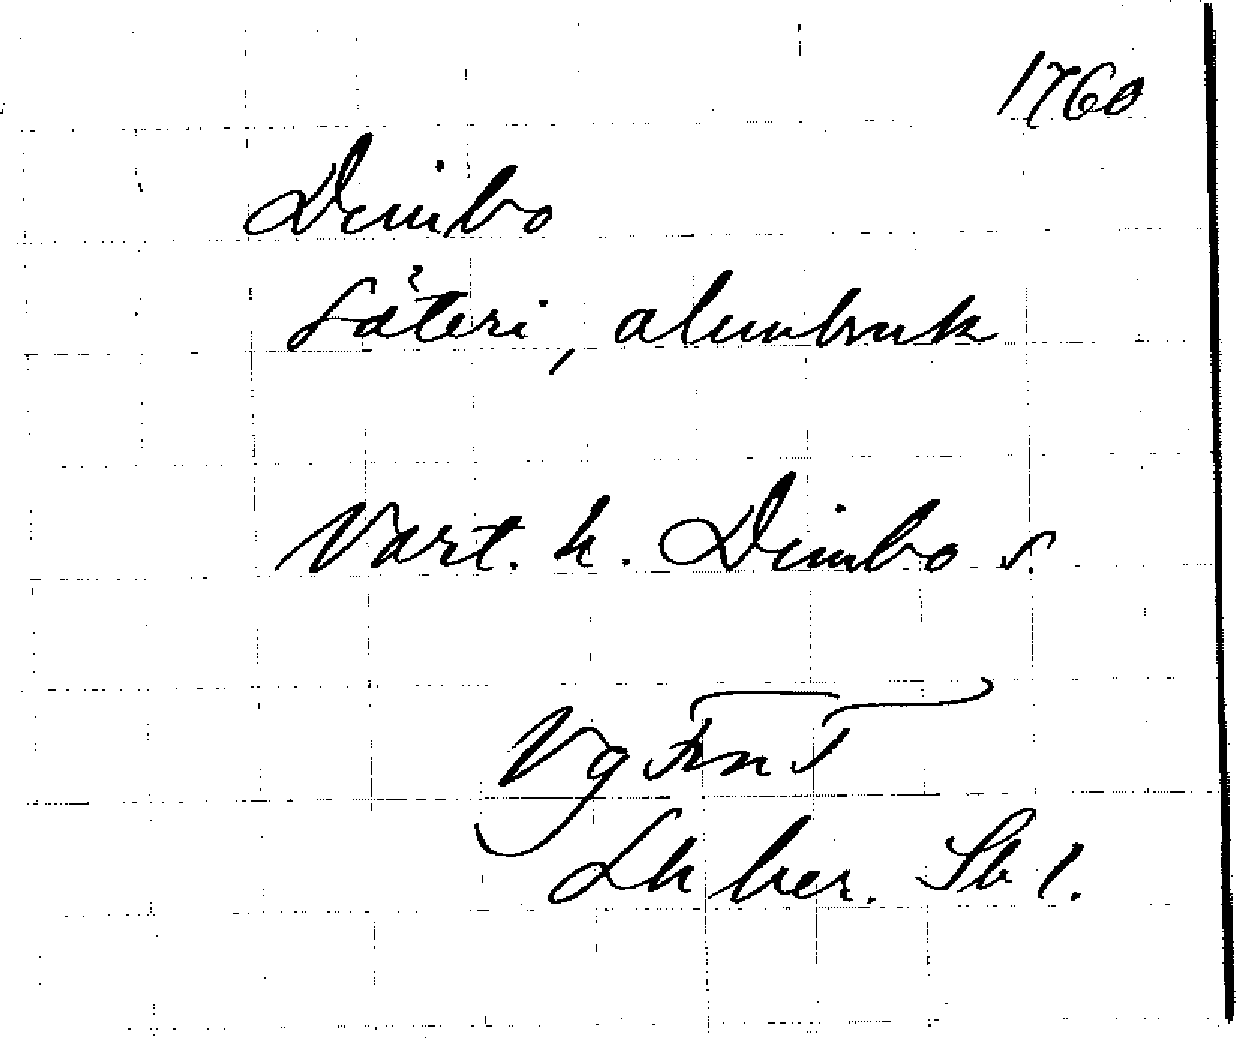 1760
Dimbo
Säteri, alunbruk
Vart. h. Dimbo s.
Vg FmT
Lh ber. Sb 1.